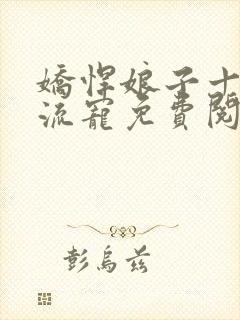 嬌悍娘子十
流寵免費閱
彭烏茲